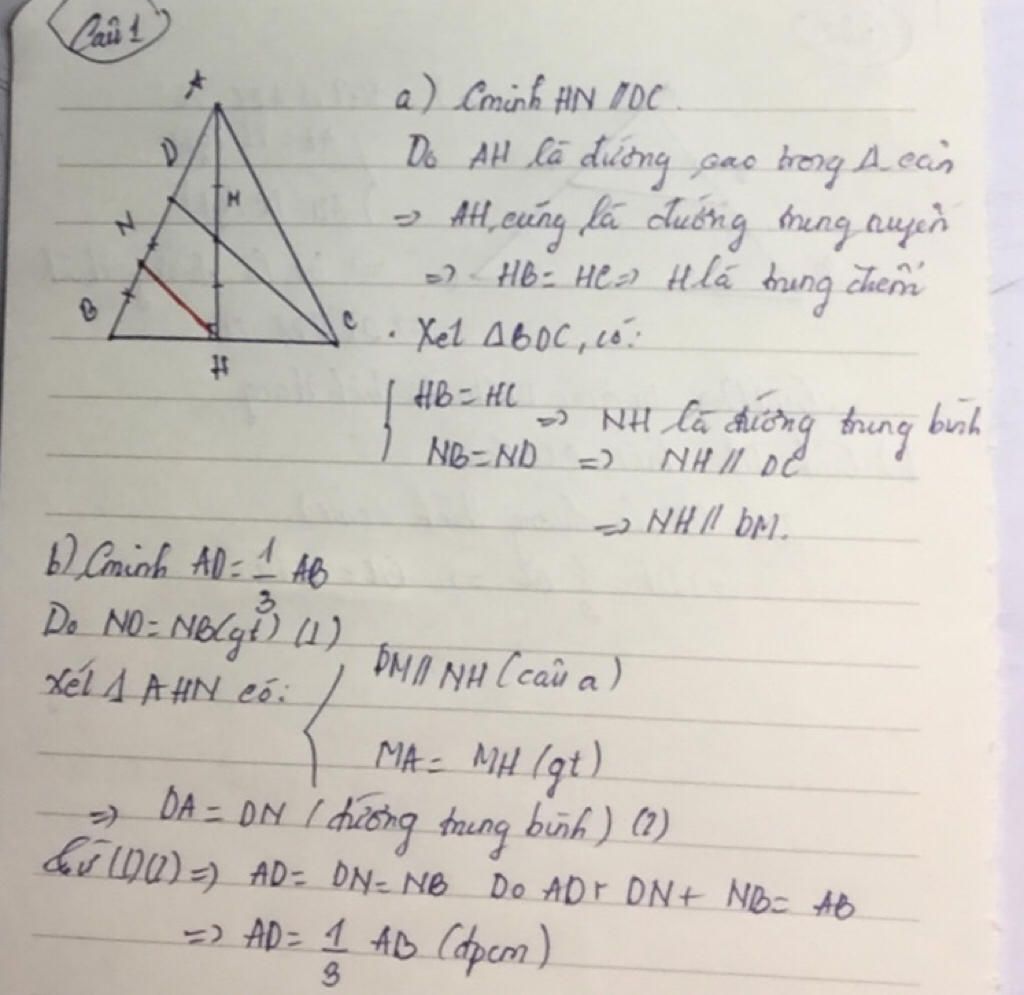 Câu 1
A
D
M
N
B
C
H
a) Cminh HN // DC.
Do AH là đường cao trong Δ cân
=> AH cũng là đường trung tuyến
=> HB = HC => H là trung điểm
. Xét ΔBDC, có:
HB = HC
=> NH là đường trung bình
NB = ND => NH // DC
=> NH // DM.
b) Cminh AD = 1/3 AB
Do ND = NB (gt) (1)
Xét Δ AHN có: DM // NH (câu a)
MA = MH (gt)
=> DA = DN (đường trung bình) (2)
Từ (1)(2) => AD = DN = NB Do AD + DN + NB = AB
=> AD = 1/3 AB (đpcm)